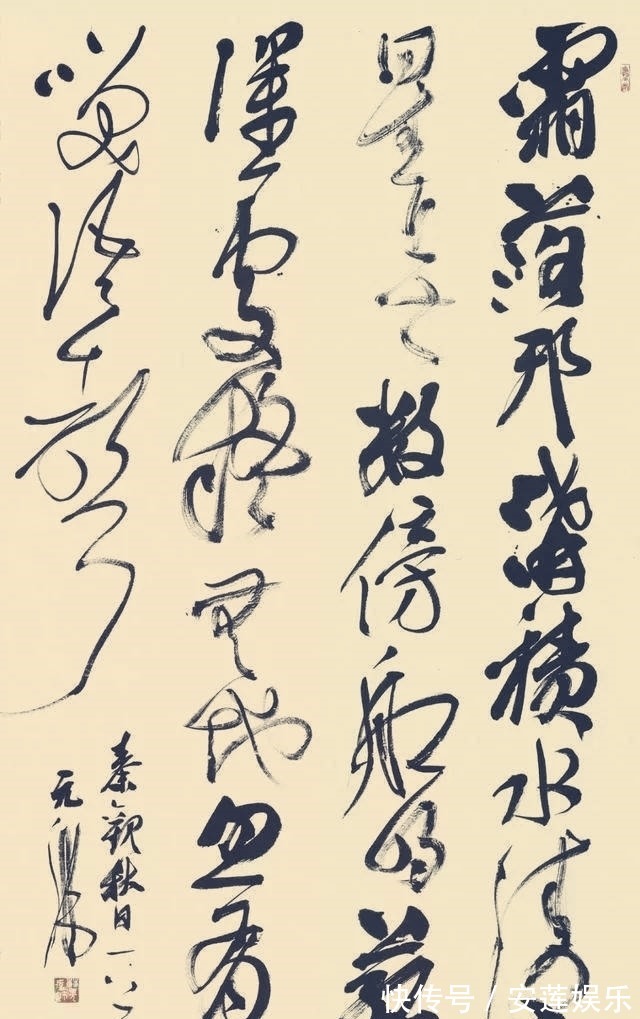 霜落邗溝積水清
星無數傍船明菰
處疑無地忽有
笑語聲
秦觀秋日一首
元
快传号／安莲娱乐